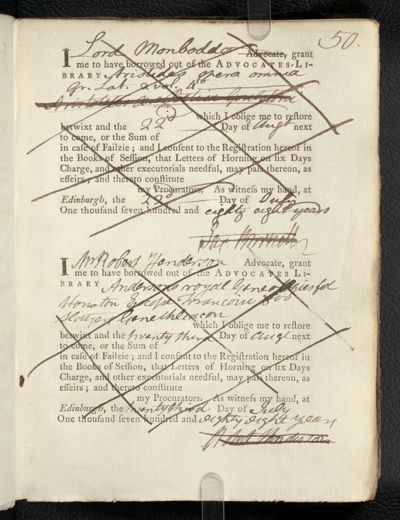 50.
I Lord Monboddo Advocate, grant
me to have borrowed out of the ADVOCATES-LI-
BRARY Aristides opera omnia
Gr. Lat. 2 vol. 4to
which I oblige me to restore
betwixt and the 22d Day of Augt next
to come, or the Sum of
in case of Failzie; and I consent to the Registration hereof in
the Books of Session, that Letters of Horning on six Days
Charge, and other executorials needful, may pass thereon, as
effeirs; and thereto constitute
my Procurators. As witness my hand, at
Edinburgh, the 22d Day of July
One thousand seven hundred and eighty eight years
I Mr Robert Henderson Advocate, grant
me to have borrowed out of the ADVOCATES LI-
BRARY Andersons royal Genealogies fol
Houston
which I oblige me to restore
betwixt and the twenty third Day of Augt next
to come, or the Sum of
in case of Failzie; and I consent to the Registration hereof in
the Books of Session, that Letters of Horning on six Days
Charge, and other executorials needful, may pass thereon, as
effeirs; and thereto constitute
my Procurators. As witness my hand, at
Edinburgh, the twenty third Day of July
One thousand seven hundred and eighty eight years
Robt Henderson